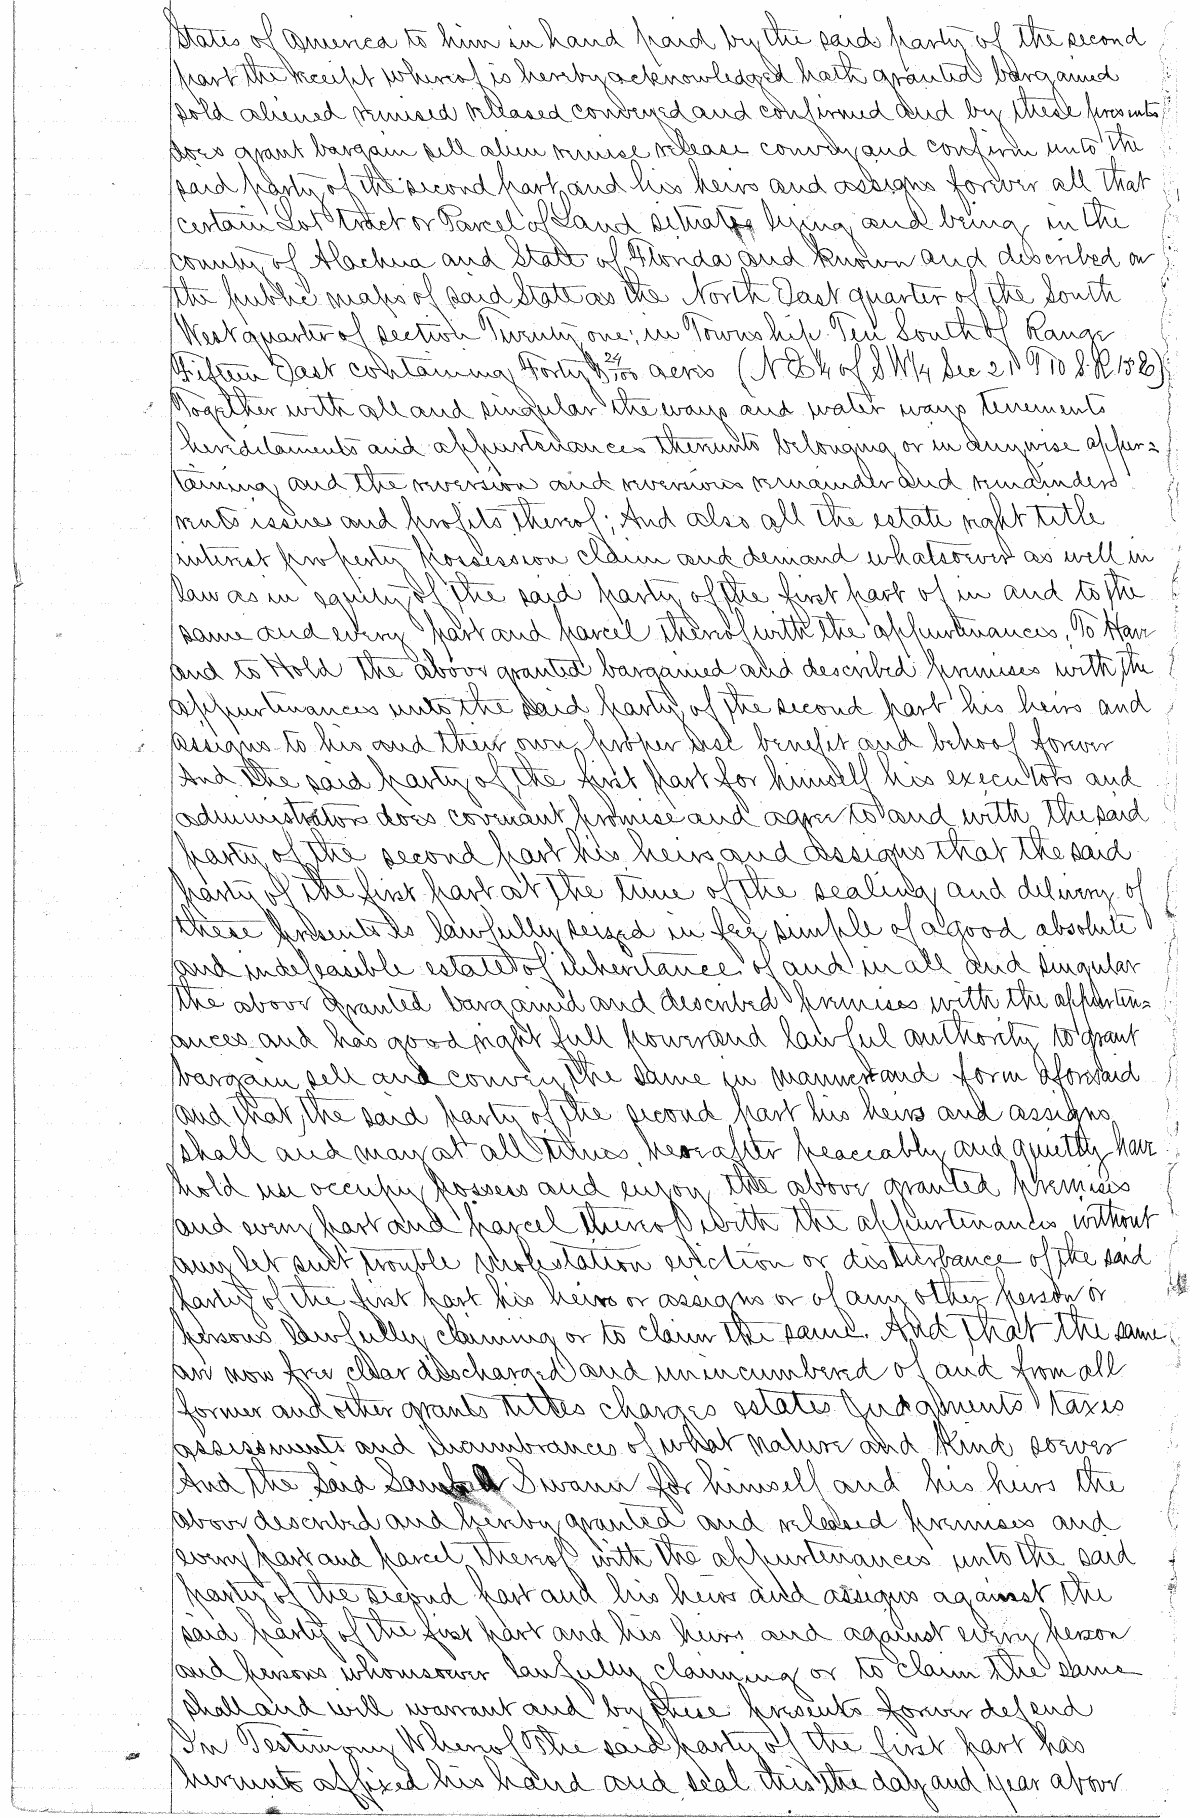 States of America to him in hand paid by the said party of the second
part the receipt whereof is hereby acknowledged hath granted bargained
sold aliened remised released conveyed and confirmed and by these presents
does grant bargain sell alien remise release convey and confirm unto the
said party of the second part and his heirs and assigns forever all that
certain Lot tract or Parcel of Land situate lying and being in the
county of Alachua and State of Florida and known and described on
the public maps of said State as the North East quarter of the South
West quarter of section Twenty one; in Township Ten South of Range
Fifteen East containing Forty & 24/100 acres (N E ¼ of S W ¼ Sec 21 T 10 S. R 15 E)
Together with all and singular the ways and water ways tenements
hereditaments and appurtenances thereunto belonging or in anywise apper=
taining and the reversion and reversions remainder and remainders
rents issues and profits thereof; And also all the estate right title
interest property possession claim and demand whatsoever as well in
law as in equity of the said party of the first part of in and to the
same and every part and parcel thereof with the appurtenances, To Have
and to Hold the above granted bargained and described premises with the
appurtenances unto the said party of the second part his heirs and
assigns to his and their own proper use benefit and behoof forever
And the said party of the first part for himself his executors and
administrators does covenant promise and agree to and with the said
party of the second part his heirs and assigns that the said
party of the first part at the time of the sealing and delivery of
these presents is lawfully seized in fee simple of a good absolute
and indefeasible estate of inheritance of and in all and singular
the above granted bargained and described premises with the appurten=
ances and has good right full power and lawful authority to grant
bargain sell and convey the same in manner and form aforesaid
and that the said party of the second part his heirs and assigns
shall and may at all times hereafter peaceably and quietly have
hold use occupy possess and enjoy the above granted premises
and every part and parcel thereof with the appurtenances without
any let suit trouble molestation eviction or disturbance of the said
party of the first part his heirs or assigns or of any other person or
persons lawfully claiming or to claim the same. And that the same
are now free clear discharged and unincumbered of and from all
former and other grants titles charges estates judgments taxes
assessments and incumbrances of what nature and kind soever
And the said Samuel Swann for himself and his heirs the
above described and hereby granted and released premises and
every part and parcel thereof with the appurtenances unto the said
party of the second part and his heirs and assigns against the
said party of the first part and his heirs and against every person
and persons whomsoever lawfully claiming or to claim the same
shall and will warrant and by these presents forever defend
In Testimony Whereof The said party of the first part has
hereunto affixed his hand and seal this the day and year above